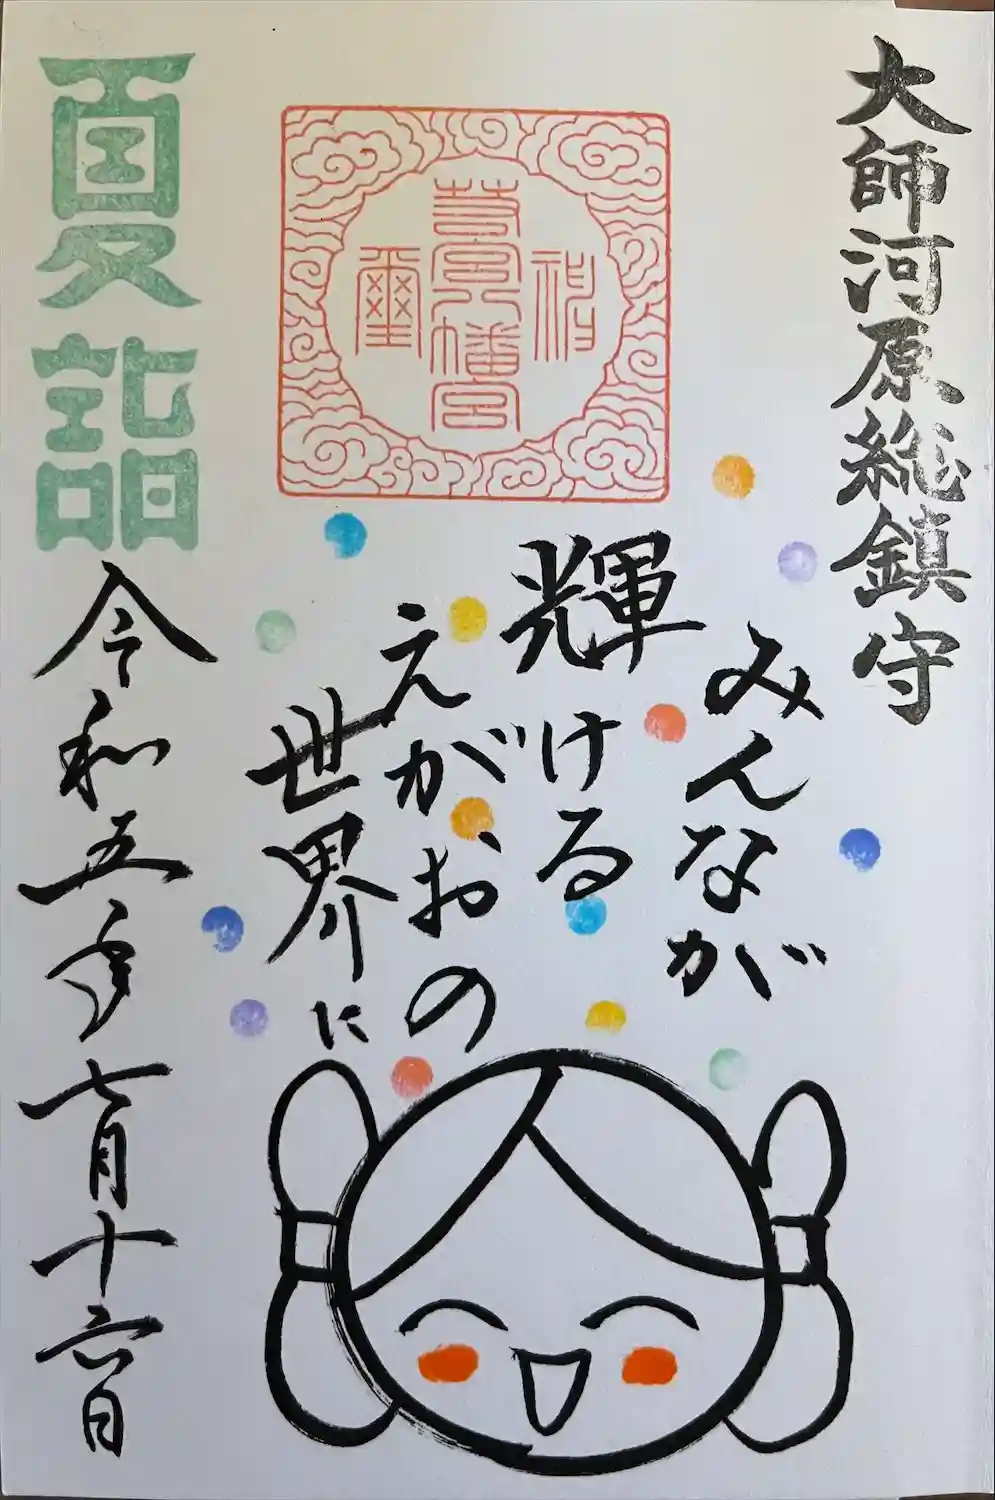 大師河原総鎮守
若宮八幡宮
神璽
みんなが
輝ける
えがおの
世界に
夏詣
令和五年七月十六日